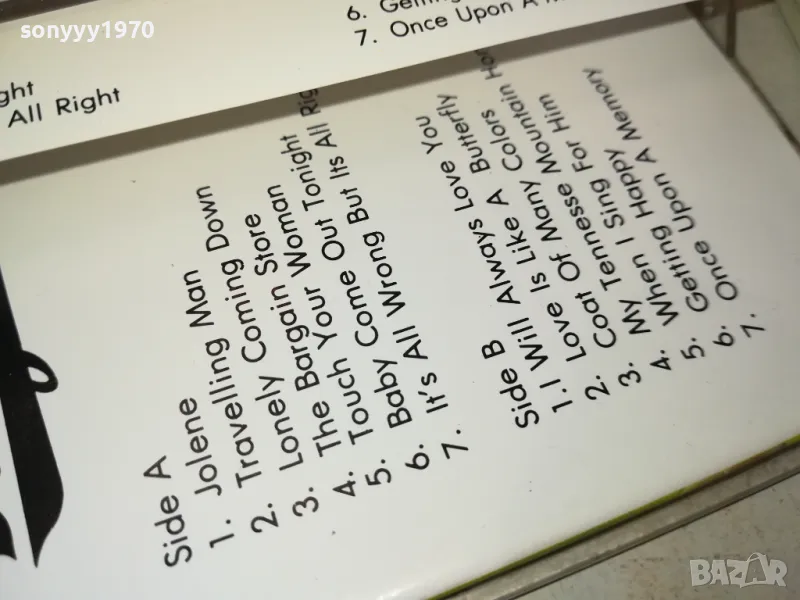 sonyyy1970
6.
7. Once Upon A
ght
All Right
Side A
1. Jolene
2. Travelling Man
3. Lonely Coming Down
4. The Bargain Store
5. Touch Your Woman
6. Baby Come Out Tonight
7. It's All Wrong But Its All Rig
Side B
1. I Will Always Love You
2. Love Is Like A Butterfly
3. Coat Of Many Colors
4. My Tennesse Mountain Hom
5. When I Sing For Him
6. Getting Happy
7. Once Upon A Memory
BAZAR